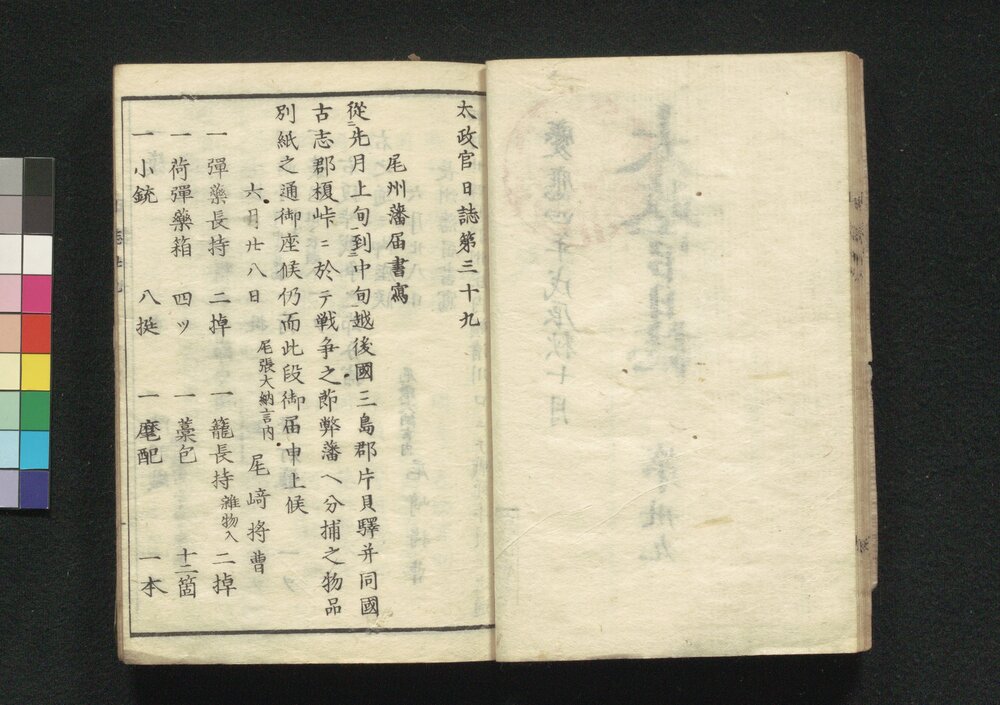 太政官日誌第三十九
尾州藩届書寫
從先月上旬到中旬越後國三島郡片貝驛并同國
古志郡榎峠ニ於テ戦争之節弊藩ヘ分捕之物品
別紙之通御座候仍而此段御届申上候
六月廿八日 尾張大納言内 尾﨑将曹
一彈藥長持 二掉 一籠長持雑物入二掉
一荷彈藥箱 四ツ 一藁包 十二箇
一小銃 八挺 一麾配 一本